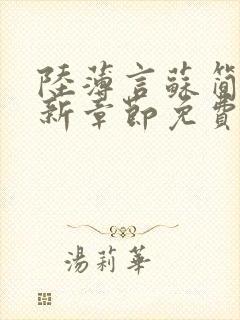 陸薄言蘇簡
新章節免費
湯莉華